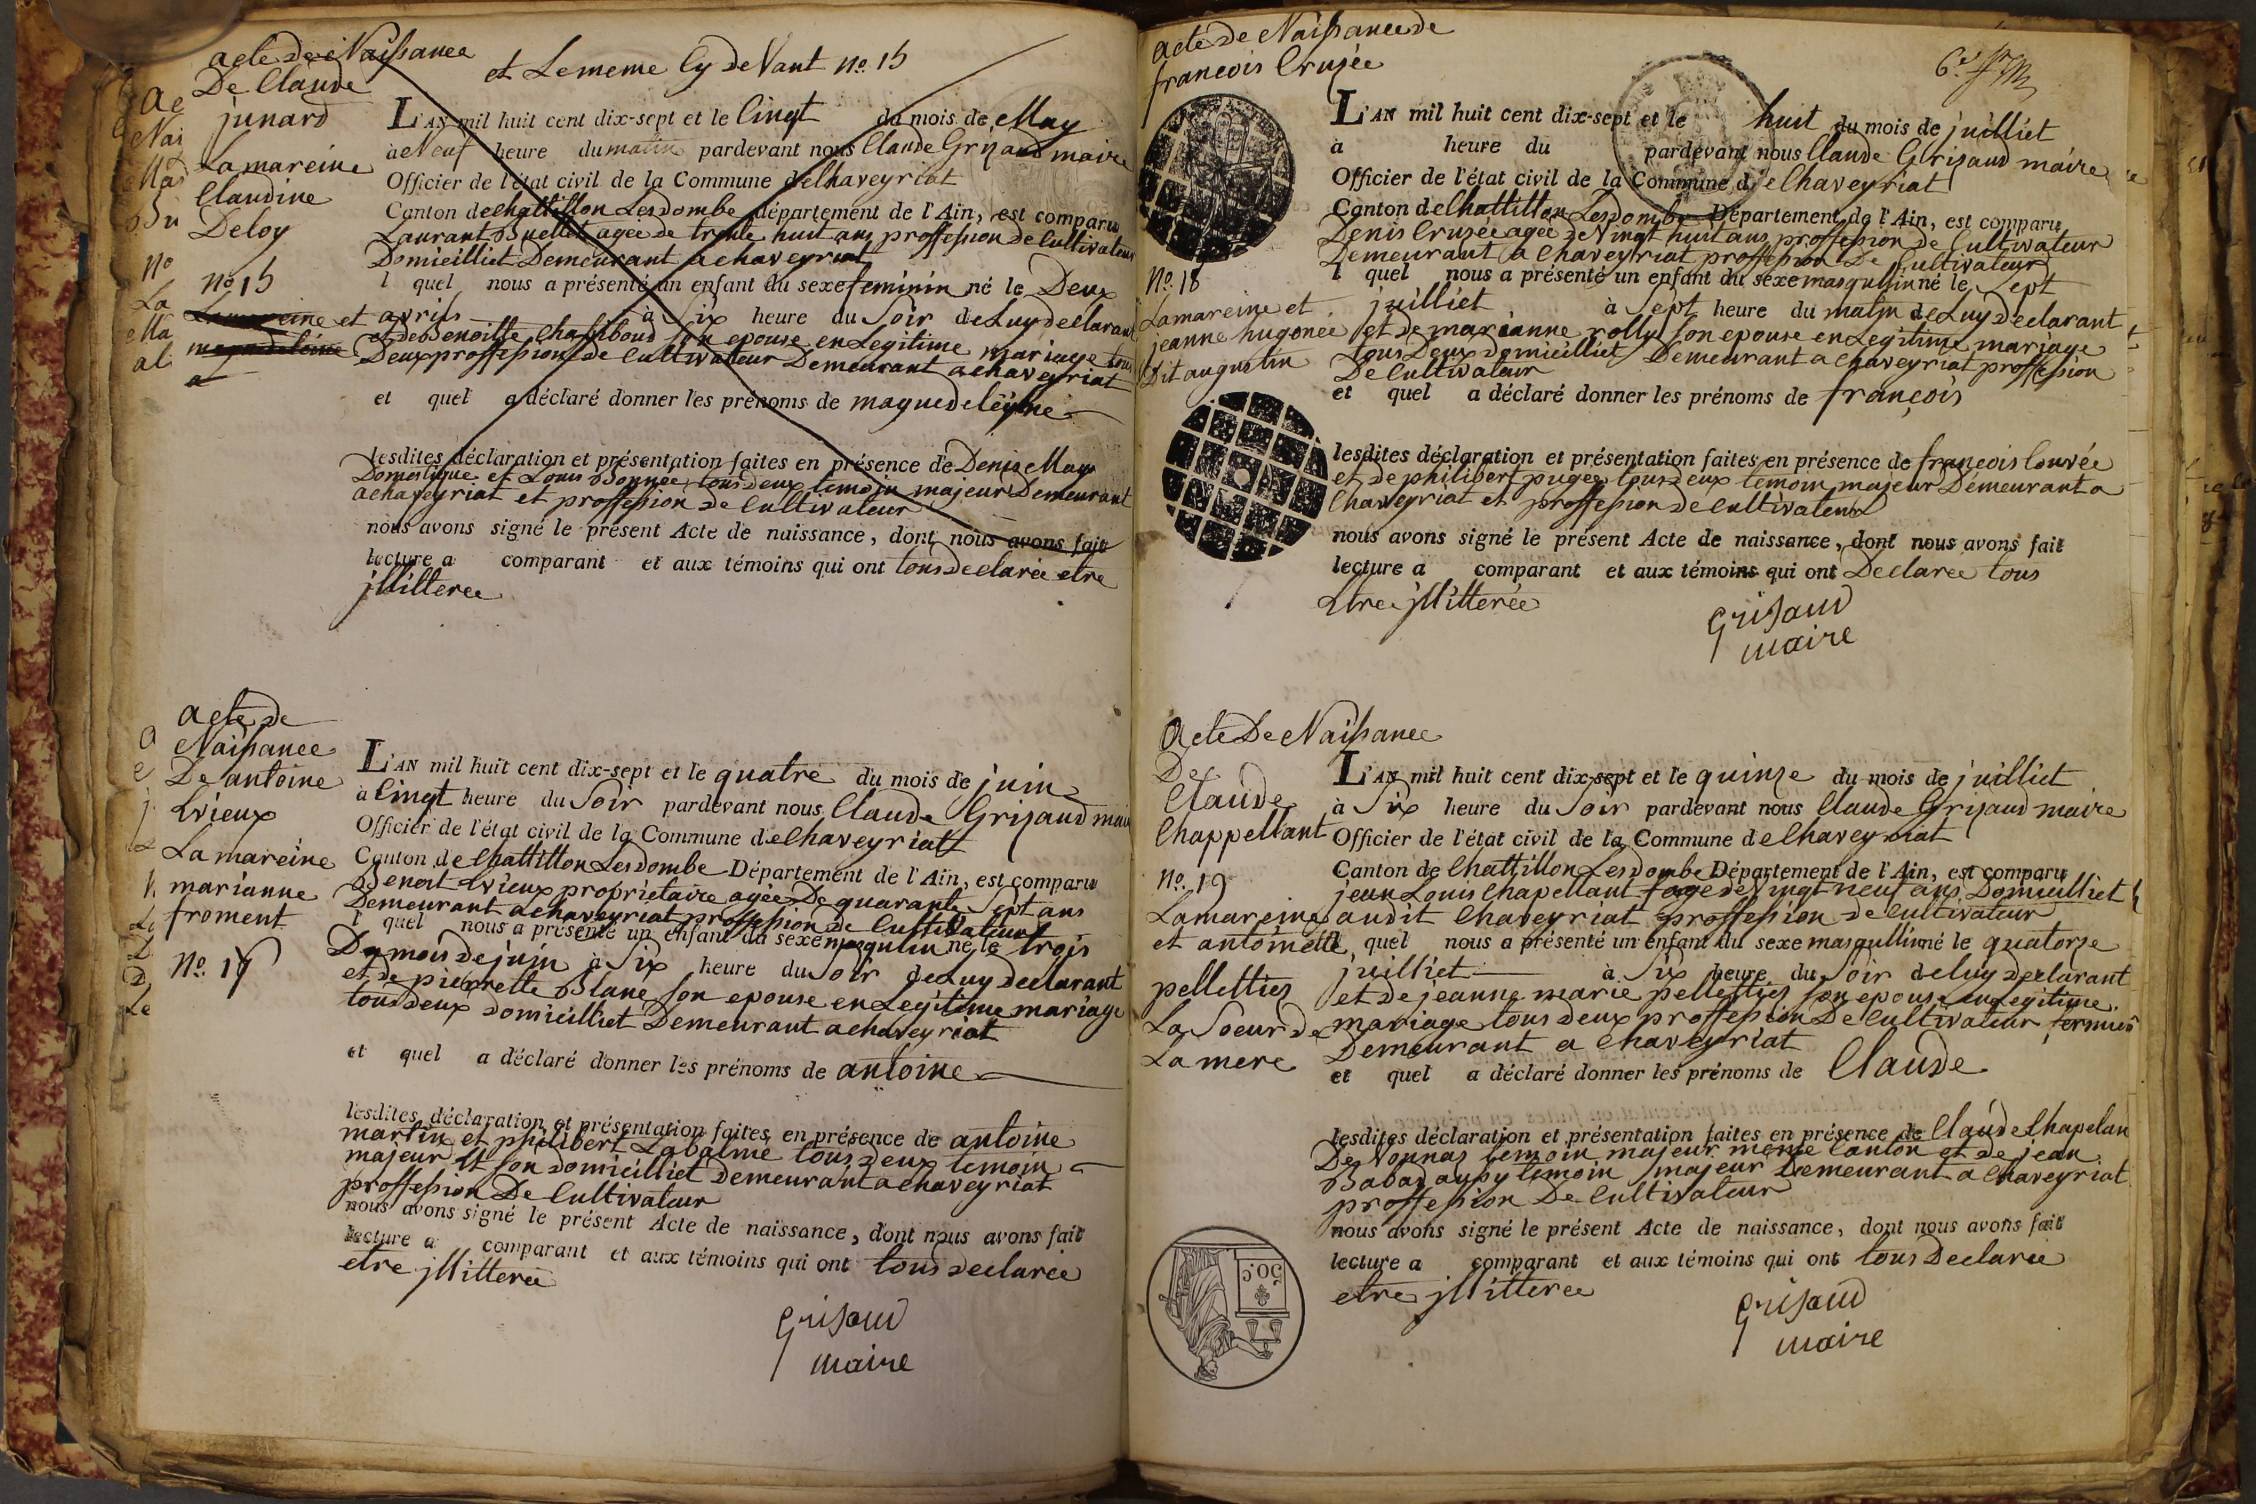 acte de Naissance
De Claude
junard
La mareine
Claudine
Deloy
no 15
La mareine et
magdeleine
a
et Le meme Cy deVant no. 15
L'AN mil huit cent dix-sept et le Cinqt du mois de May
à Neuf heure du matin pardevant nous Claude Grisaud maire
Officier de l'état civil de la Commune de Chaveyriat
Canton de Chattillon Lesdombe département de l'Ain, est comparu
Laurant Buellet agee de trente huit ans proffession de Cultivateur
Domicilliet Demeurant a Chaveyriat
l quel nous a présenté un enfant du sexe feminin né le Deux
avrils à Six heure du Soir de Luy declarant
et de Benoitte Chassiboud son epouse en Legitime mariage tous
Deux proffession de Cultivateur Demeurant a chaveyriat
et quel a déclaré donner les prénoms de maguedeleine
lesdites déclaration et présentation faites en présence de Denis May
Domestique et Louis Bonnee tous deux temoin majeur Demeurant
a chaveyriat et proffession de Cultivateur
nous avons signé le présent Acte de naissance, dont nous avons fait
lecture a comparant et aux témoins qui ont tous declarée etre
jllitteree
acte de
Naissance
De antoine
Lvieux
La mareine
marianne
froment
No. 17
L'AN mil huit cent dix-sept et le quatre du mois de juin
à Cinqt heure du Soir pardevant nous Claude Grisaud maire
Officier de l'état civil de la Commune de Chaveyriat
Canton de Chattillon Lesdombe Département de l'Ain, est comparu
Benoit Lvieux proprietaire agée De quarante Sept ans
Demeurant a chaveyriat proffession De Cultivateur
l quel nous a présenté un enfant du sexe masqulin né le trois
Du mois de juin à Six heure du Soir de Luy declarant
et de pierrette Blanc son epouse en Legitime mariage
tous deux domicilliet Demeurant a chaveyriat
et quel a déclaré donner les prénoms de antoine
lesdites déclaration et présentation faites en présence de antoine
martin et philibert Labalme tous deux temoin
majeur et son domicilliet demeurant a chaveyriat
proffession De Cultivateur
nous avons signé le présent Acte de naissance, dont nous avons fait
lecture a comparant et aux témoins qui ont tous declarée
etre jllitteree
Grisaud
maire
acte de Naissance de
francois Crusée
No. 18
La mareine et
jeanne hugonée
Dit augustin
L'AN mil huit cent dix-sept et le huit du mois de juilliet
à heure du pardevant nous Claude Grisaud maire
Officier de l'état civil de la Commune de Chaveyriat
Canton de Chattillon Lesdombe Département de l'Ain, est comparu
Denis Crusée agée de Vingt huit ans proffession de Cultivateur
Demeurant a Chaveyriat proffession De Cultivateur
l quel nous a présenté un enfant du sexe masqullin né le Sept
juilliet à Sept heure du matin de Luy declarant
et de marianne rolly son epouse en Legitime mariage
tous Deux domicilliet Demeurant a chaveyriat proffession
De Cultivateur
et quel a déclaré donner les prénoms de françois
lesdites déclaration et présentation faites en présence de francois Couvée
et de philibert puget tous deux temoin majeur Demeurant a
Chaveyriat et proffession de Cultivateur
nous avons signé le présent Acte de naissance, dont nous avons fait
lecture a comparant et aux témoins qui ont Declaree tous
etre jllitterée
Grisaud
maire
Acte De Naissance
De
Claude
Chappellant
No. 19
La mareine
et antoinette
pelletties
La Soeur de
La mere
L'AN mil huit cent dix-sept et le quinse du mois de juilliet
à Six heure du Soir pardevant nous Claude Grisaud maire
Officier de l'état civil de la Commune de Chaveyriat
Canton de Chattillon Lesdombe Département de l'Ain, est comparu
jean Louis Chapellant age de Vingt neuf ans Domicilliet
audit Chaveyriat proffession de Cultivateur
l quel nous a présenté un enfant du sexe masqullin né le quatorse
juilliet à Six heure du Soir de luy declarant
et de jeanne marie pelletties son epouse en Legitime
mariage tous deux proffession De Cultivateur fermies
Demeurant a Chaveyriat
et quel a déclaré donner les prénoms de Claude
lesdites déclaration et présentation faites en présence de Claude Chapelan
De Vonnas temoin majeur meme Canton et de jean
Babad aussy temoin majeur Demeurant a Chaveyriat
proffession De Cultivateur
nous avons signé le présent Acte de naissance, dont nous avons fait
lecture a comparant et aux témoins qui ont tous Declarée
etre jllitteree
Grisaud
maire
50. C